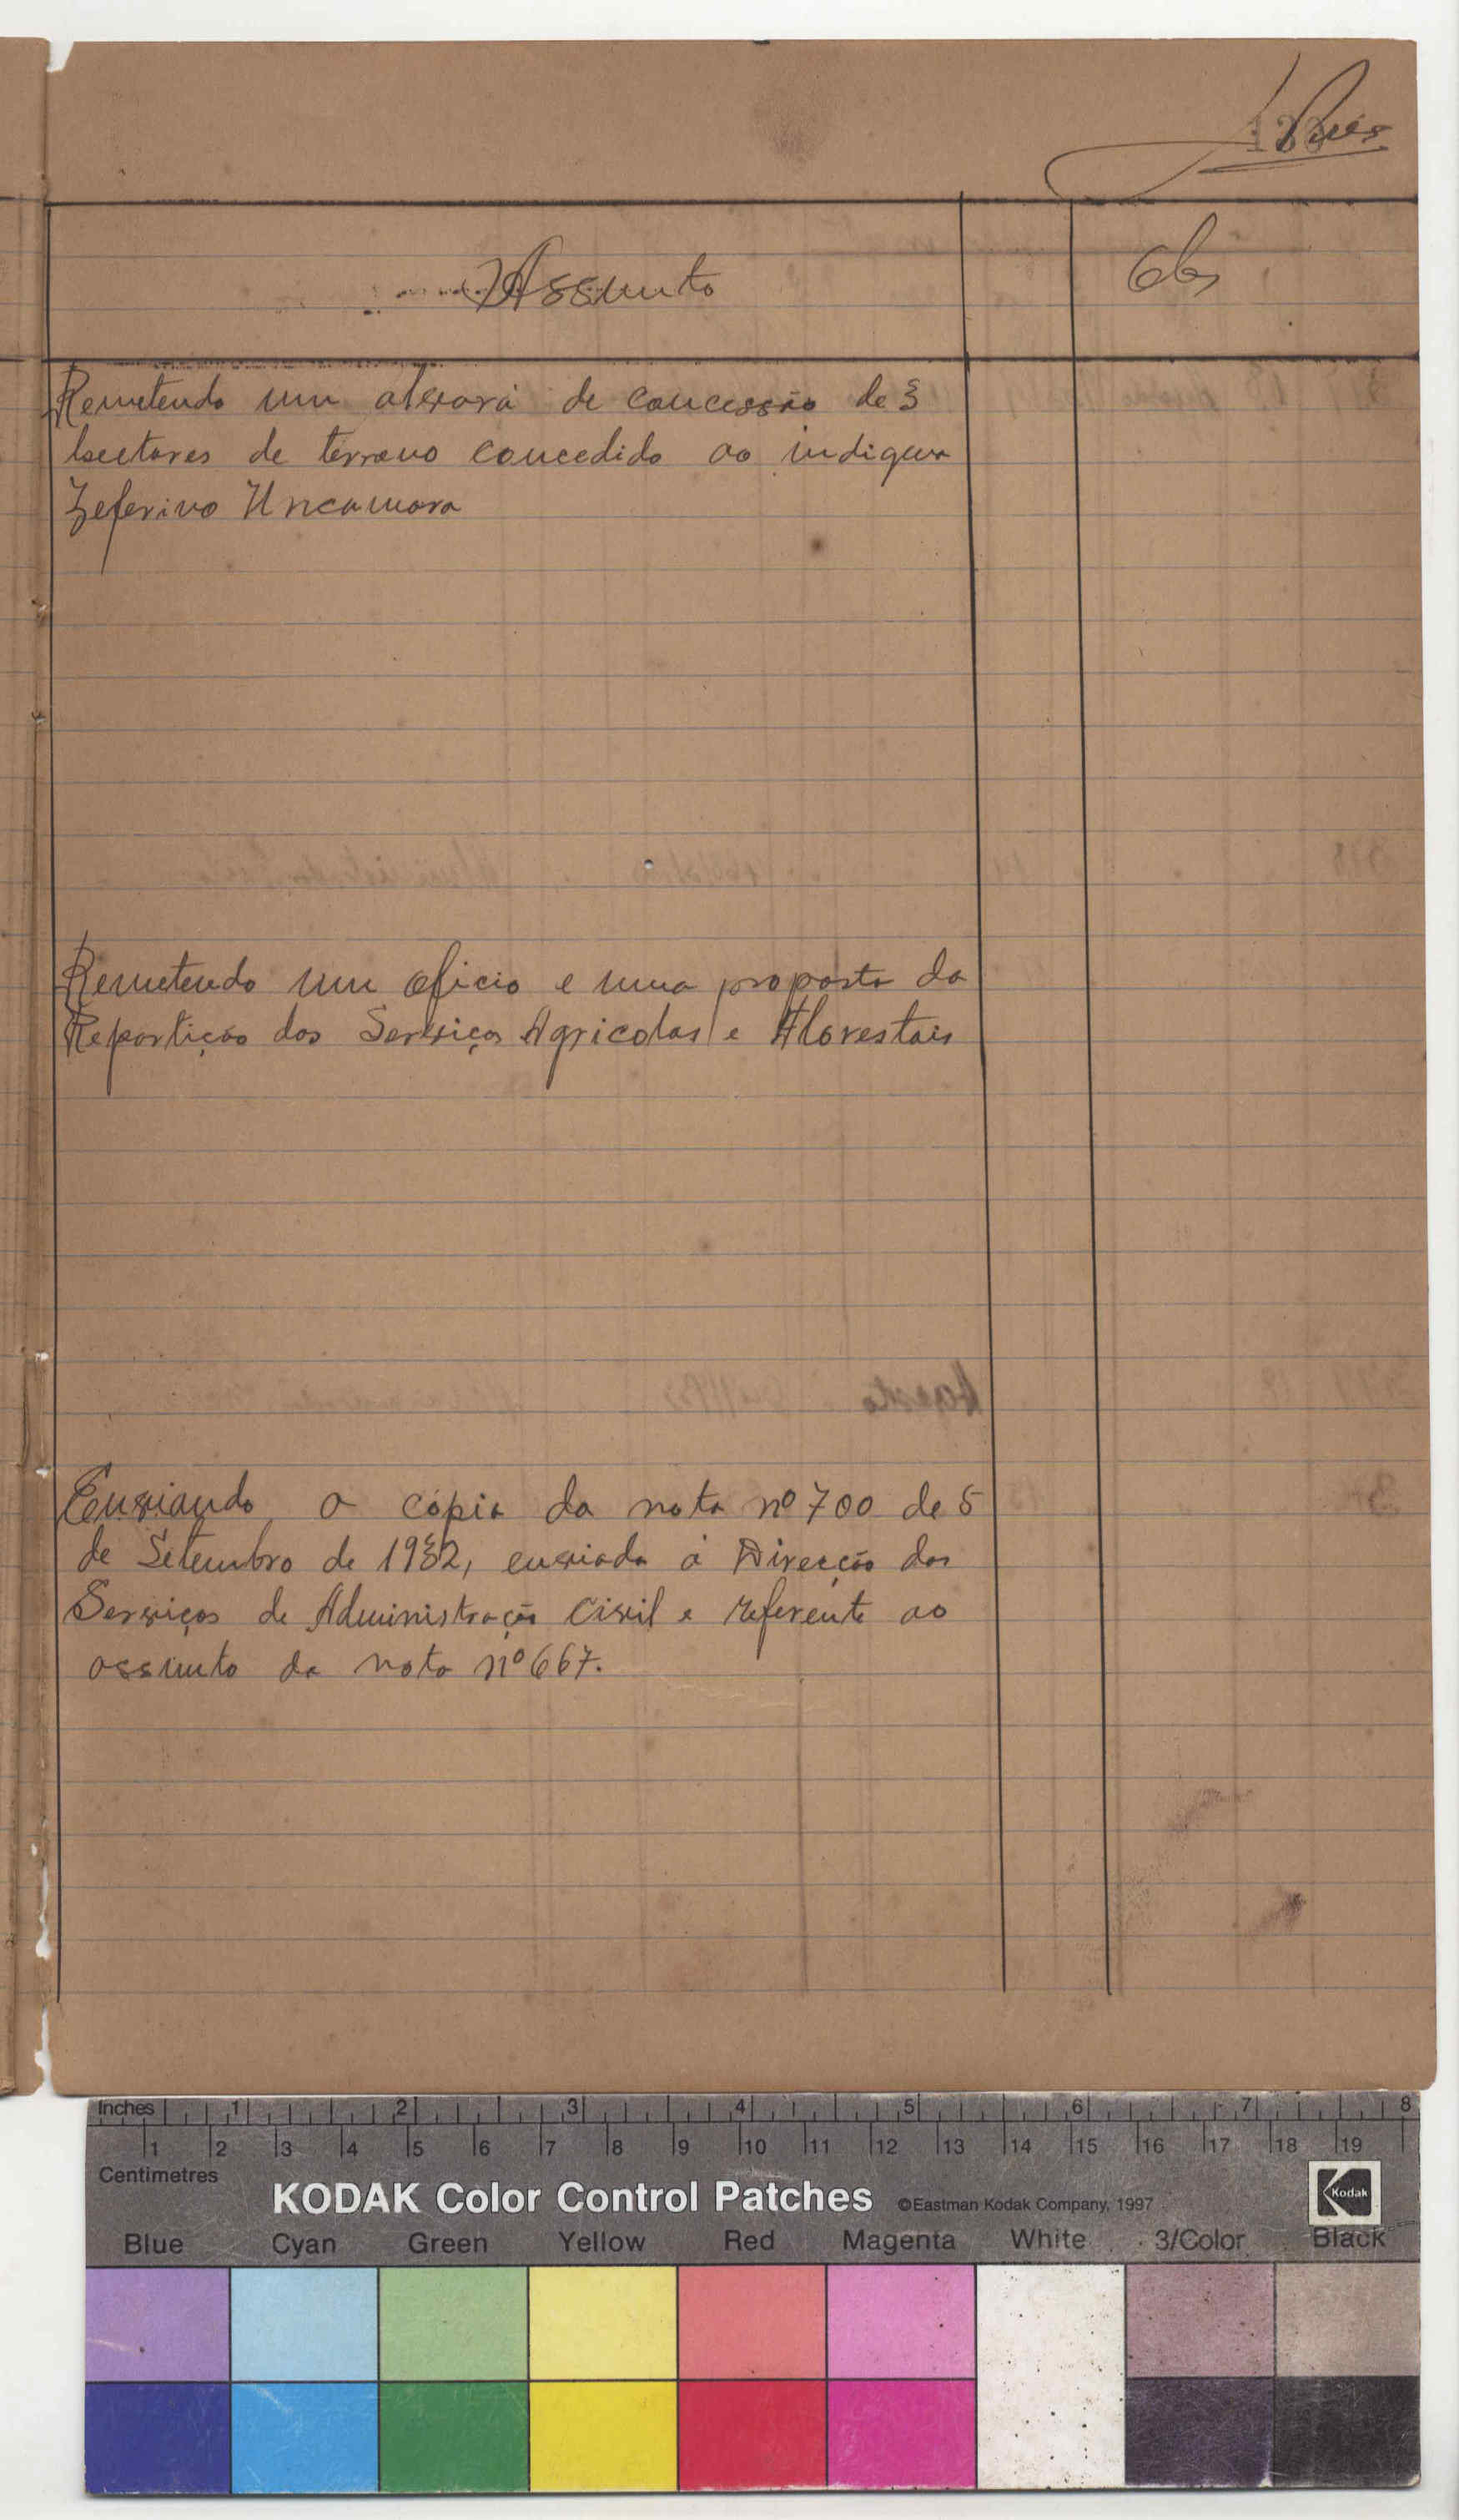 Assunto
Obs
Remetendo um alvará de concessão de 3
hectares de terreno concedido ao indigena
Zeferino Uncamara
Remetendo um oficio e uma proposta da
Repartição dos Serviços Agricolas e Florestais
Enviando a cópia da nota nº 700 de 5
de Setembro de 1932, enviada á Direcção dos
Serviços de Administração Civil e referente ao
assunto da nota nº 667.
Inches 1 2 3 4 5 6 7 8
1 2 3 4 5 6 7 8 9 10 11 12 13 14 15 16 17 18 19
Centimetres
KODAK Color Control Patches ©Eastman Kodak Company, 1997 Kodak
Blue Cyan Green Yellow Red Magenta White 3/Color Black